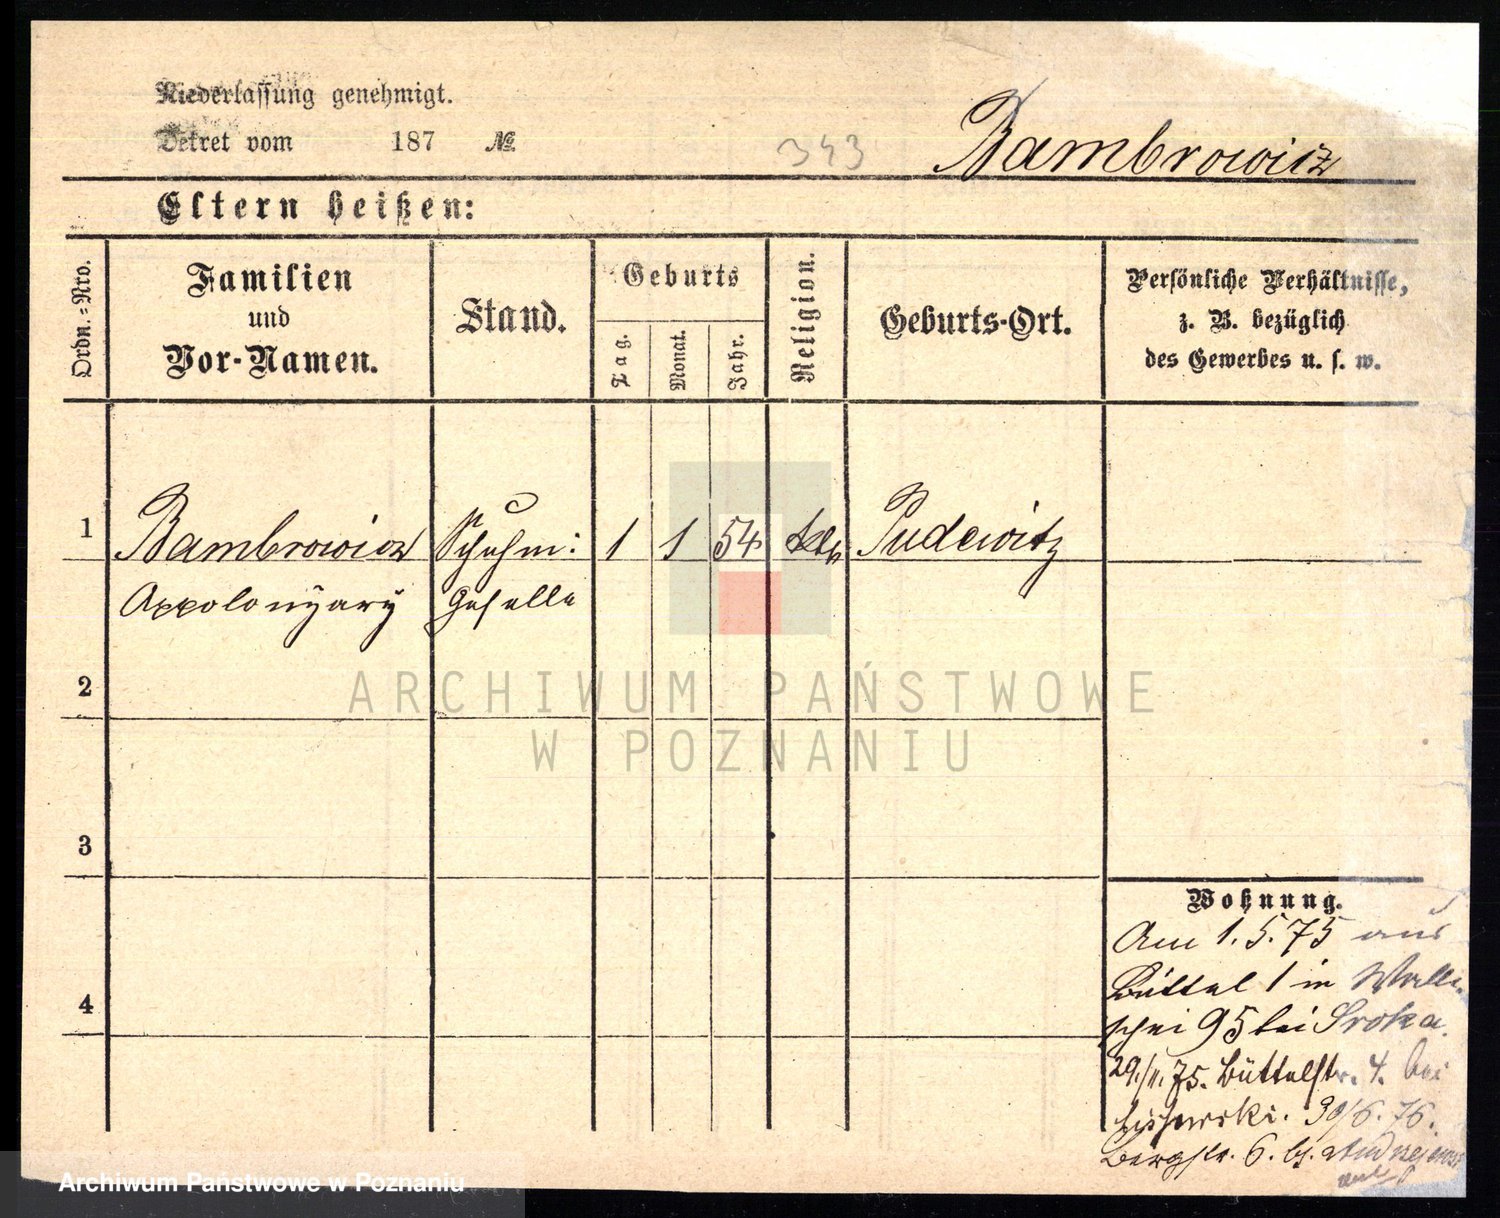 Niederlassung genehmigt.
Dekret vom 187 №
343 Bambrowicz
Eltern heißen:
Ordn.=Nro.
Familien
und
Vor-Namen.
Stand.
Geburts
Tag.
Monat.
Jahr.
Religion.
Geburts-Ort.
Persönliche Verhältnisse,
z. B. bezüglich
des Gewerbes u. s. w.
1 Bambrowicz Schuhm: 1 1 54 kth Pudewitz
Geselle
2
ARCHIWUM PAŃSTWOWE
W POZNANIU
3
4
Wohnung.
Am 1.5.75 aus
Büttel 1 in Walli
schei 95 bei Sroka.
29./11. 75. Büttelstr. 4. bei
30/6. 76.
Bergstr. 6. b.
Archiwum Państwowe w Poznaniu